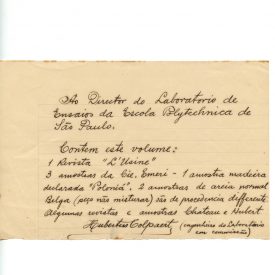 Ao Director do Laboratorio de
Ensaios da Escola Polytechnica de
São Paulo.
Contem este volume:
1 Revista "L'Usine"
3 amostras da Cie. Emeri - 1 amostra madeira
declarada "Polonia", 2 amostras de areia normal
Belga (peço não misturar) são de procedencia differente
Algumas revistas e amostras Chateau e Hubert
Hubertus Colpaert (engenheiro do Laboratorio
em commissão)